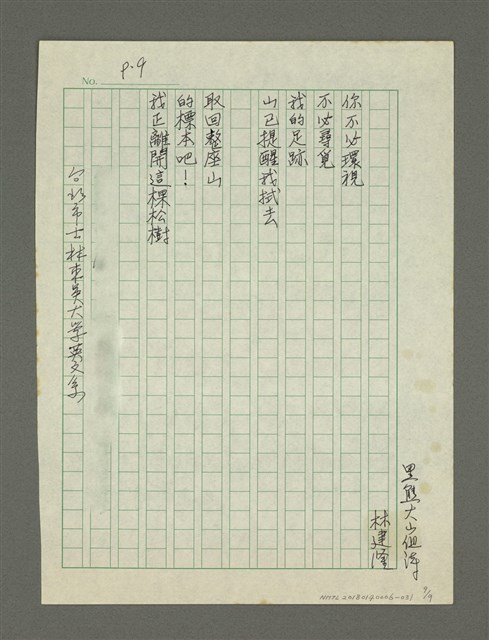 No. P.9
黑熊大山
林建隆
你不必環視
不必尋覓
我的足跡
山已提醒我拭去
取回整座山
的標本吧！
我正離開這棵松樹
台北市士林東吳大学英文系
9/9
NMTL20180190006-031